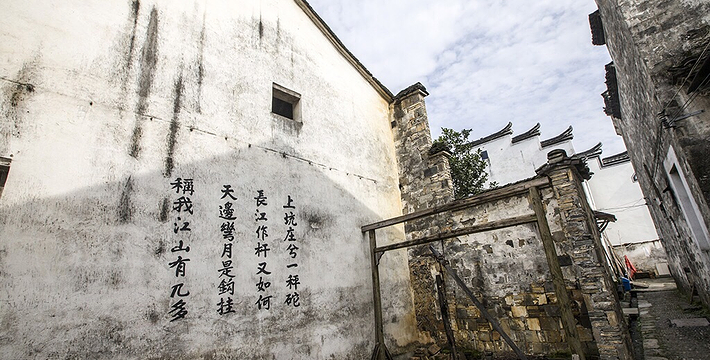 上坑庄兮一秤砣
長江作杆又如何
天邊彎月是鈎挂
稱我江山有几多